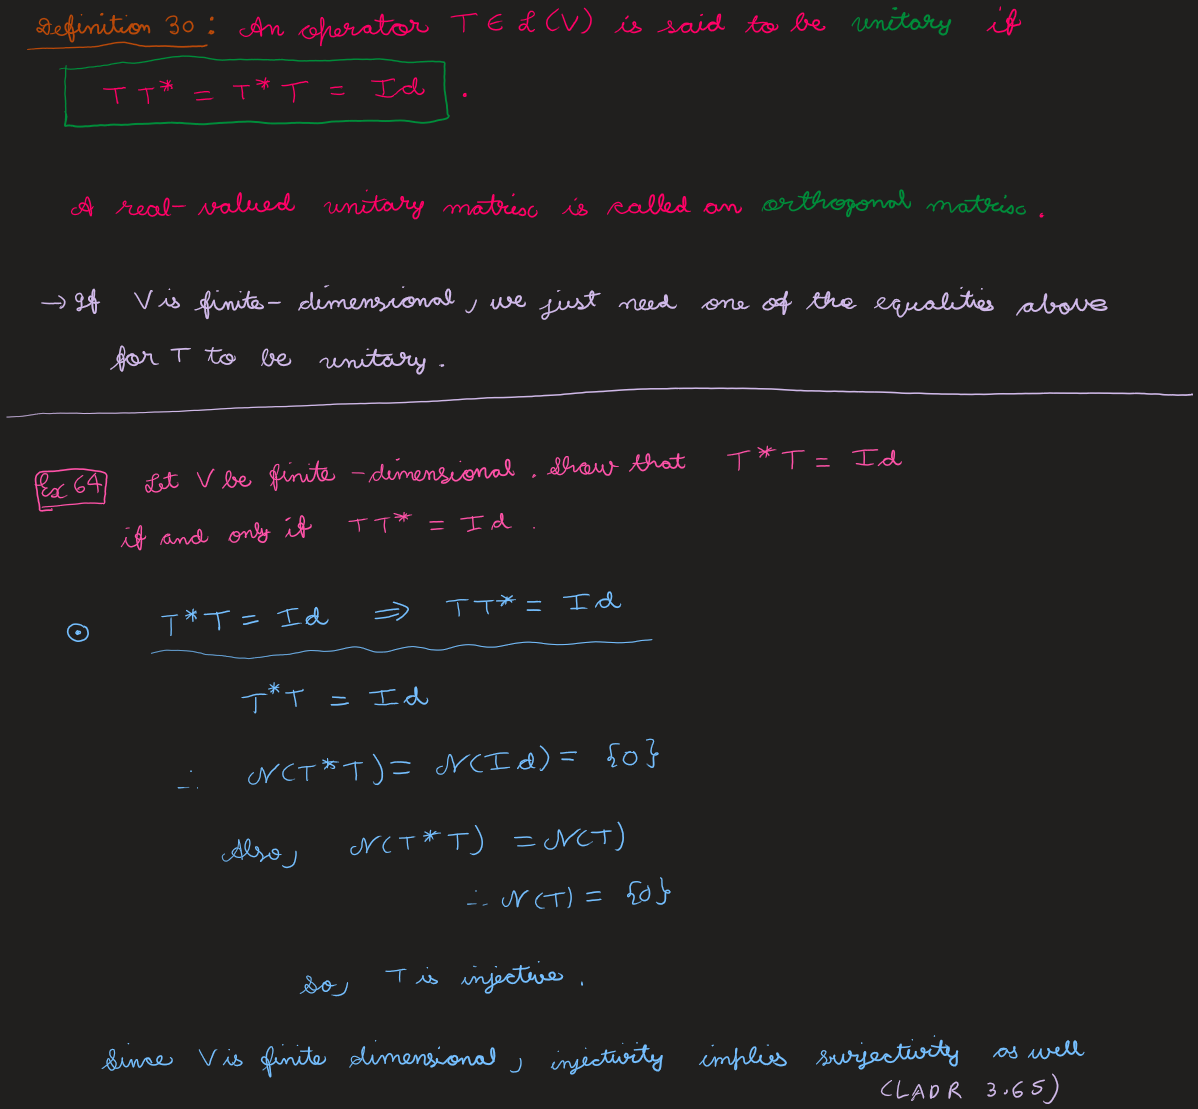 Definition 30: An operator T ∈ L(V) is said to be unitary if
TT* = T*T = Id .
A real-valued unitary matrix is called an orthogonal matrix.
→ If V is finite-dimensional, we just need one of the equalities above
for T to be unitary.
Ex 64 Let V be finite-dimensional. Show that T*T = Id
if and only if TT* = Id .
⊙ T*T = Id ⇒ TT* = Id
T*T = Id
∴ N(T*T) = N(Id) = {0}
Also, N(T*T) = N(T)
∴ N(T) = {0}
So, T is injective.
Since V is finite dimensional, injectivity implies surjectivity as well
(LADR 3.65)